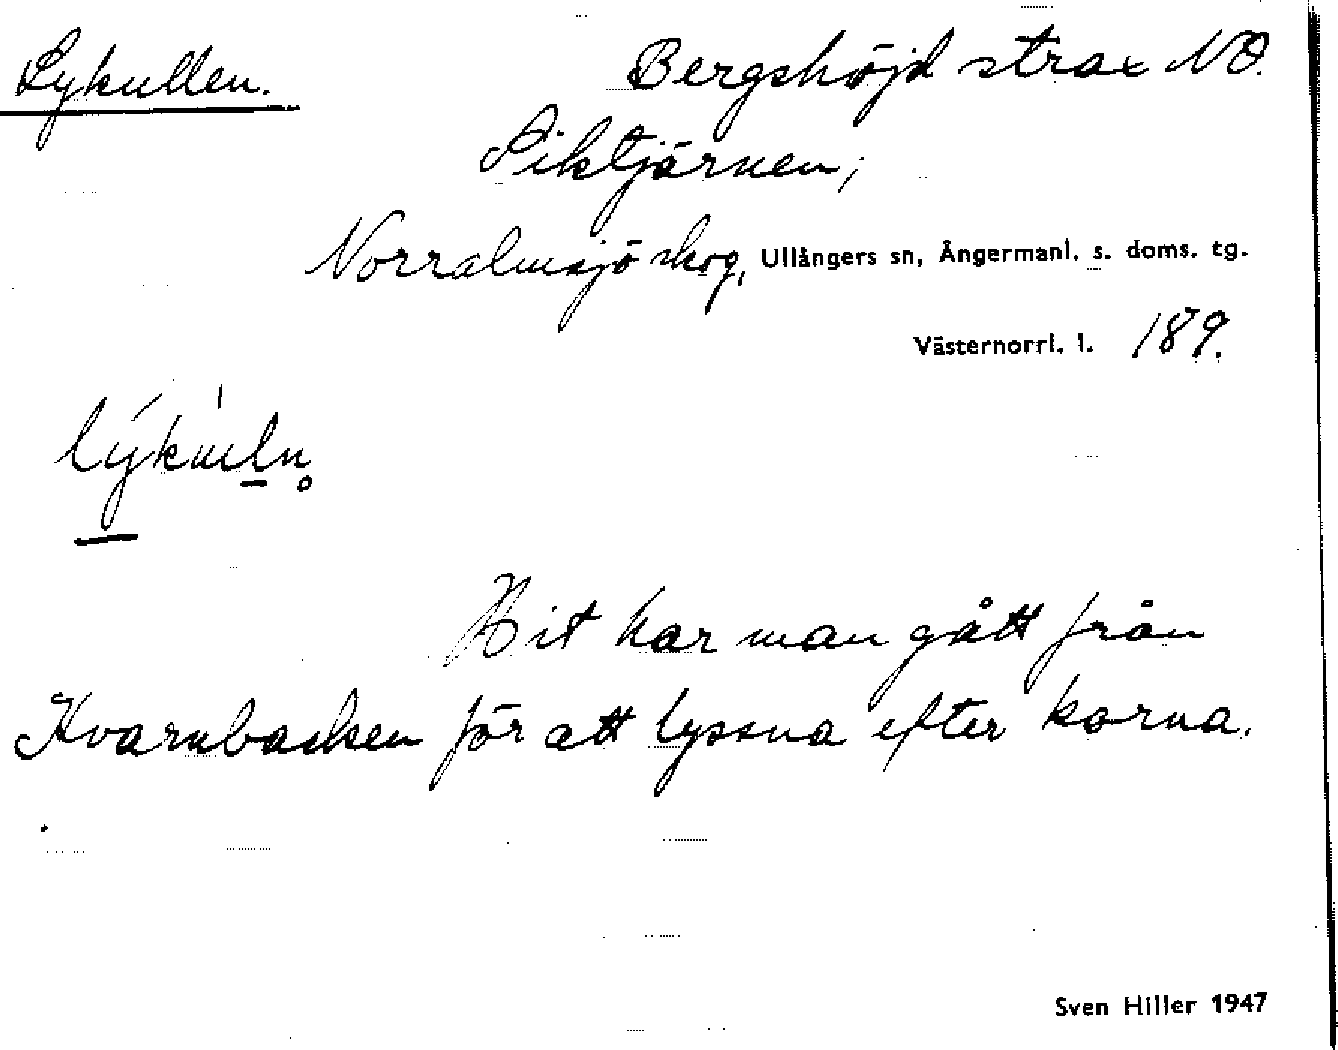 Lykullen.
Bergshöjd strax NO.
Siktjärnen,
Norralmsjö skog, Ullångers sn, Ångermanl. s. doms. tg.
Västernorrl. l. 189.
lýkuln̥
Hit har man gått från
Kvarnbacken för att lyssna efter korna.
Sven Hiller 1947